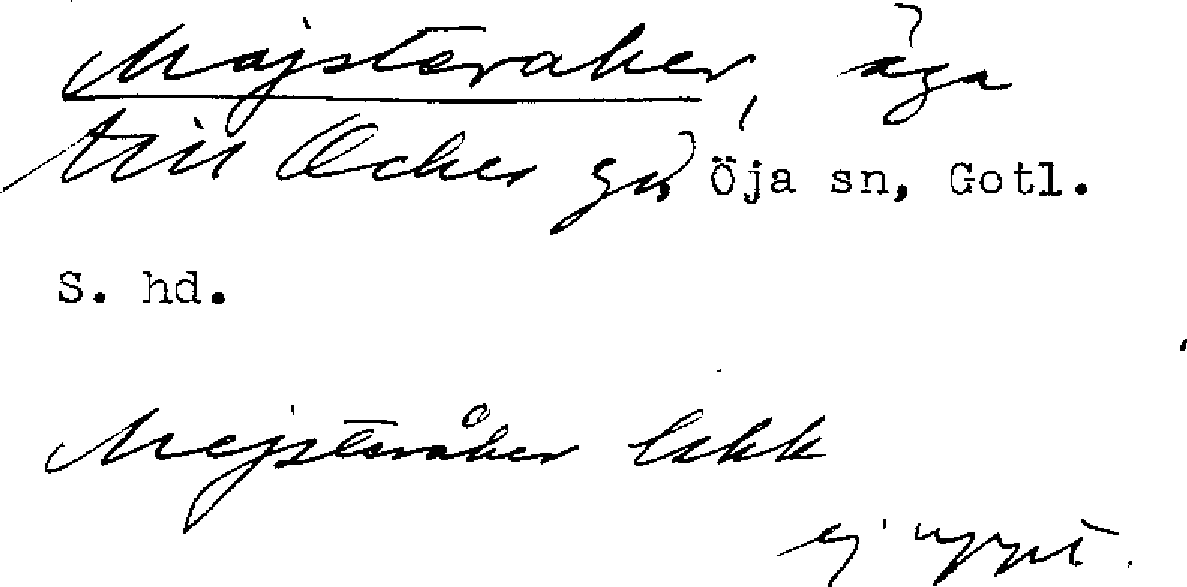 Majsteraker, äga
till Ocker gd, Öja sn, Gotl.
S. hd.
Mejsteråker lskk
ej uppt.